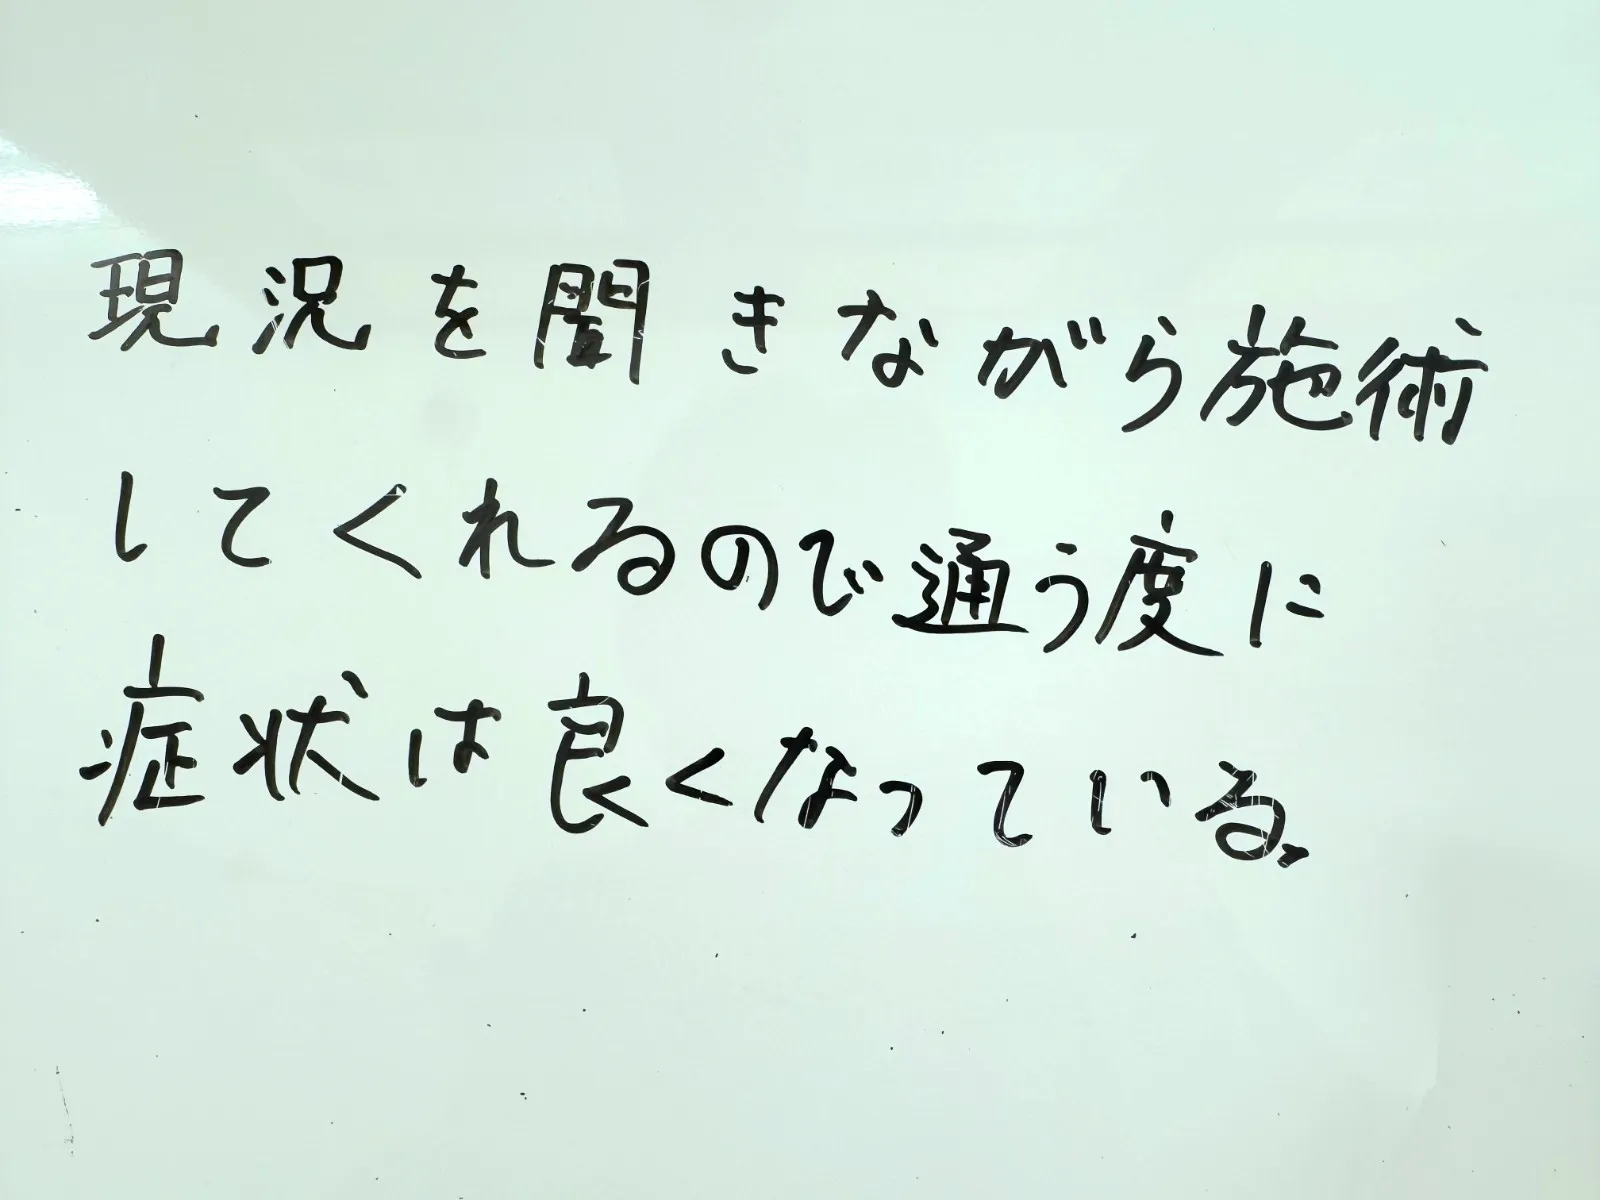 現況を聞きながら施術
してくれるので通う度に
症状は良くなっている。